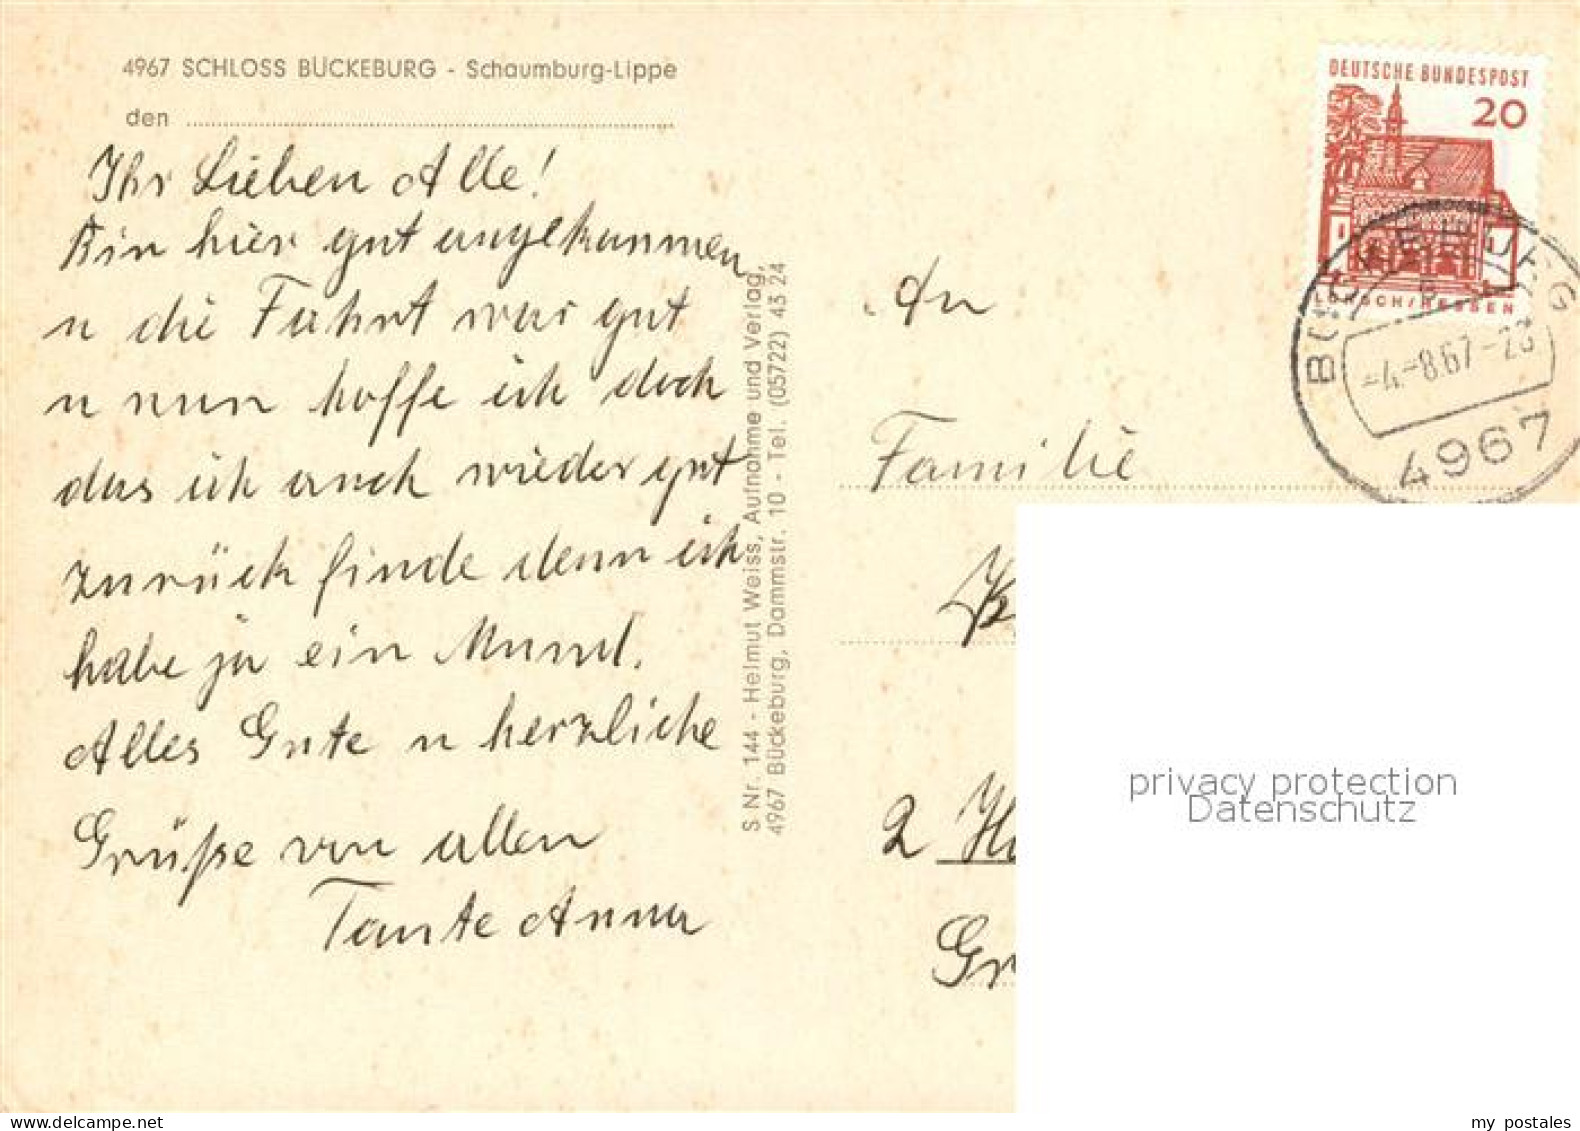 4967 SCHLOSS BÜCKEBURG - Schaumburg-Lippe
den
Ihr Lieben Alle!
Bin hier gut angekommen
u die Fahrt war gut
u nun hoffe ich doch
das ich auch wieder gut
zurück finde denn ich
habe ja ein Mund.
Alles Gute u herzliche
Grüße von allen
Tante Anna
S Nr. 144 - Helmut Weiss, Aufnahme und Verlag,
4967 Bückeburg, Dammstr. 10 - Tel. (05722) 43 24
DEUTSCHE BUNDESPOST
20
LORSCH/HESSEN
BÜCKEBURG
-4.-8.67-
4967
An
Familie
2
Gr
privacy protection
Datenschutz
my postales